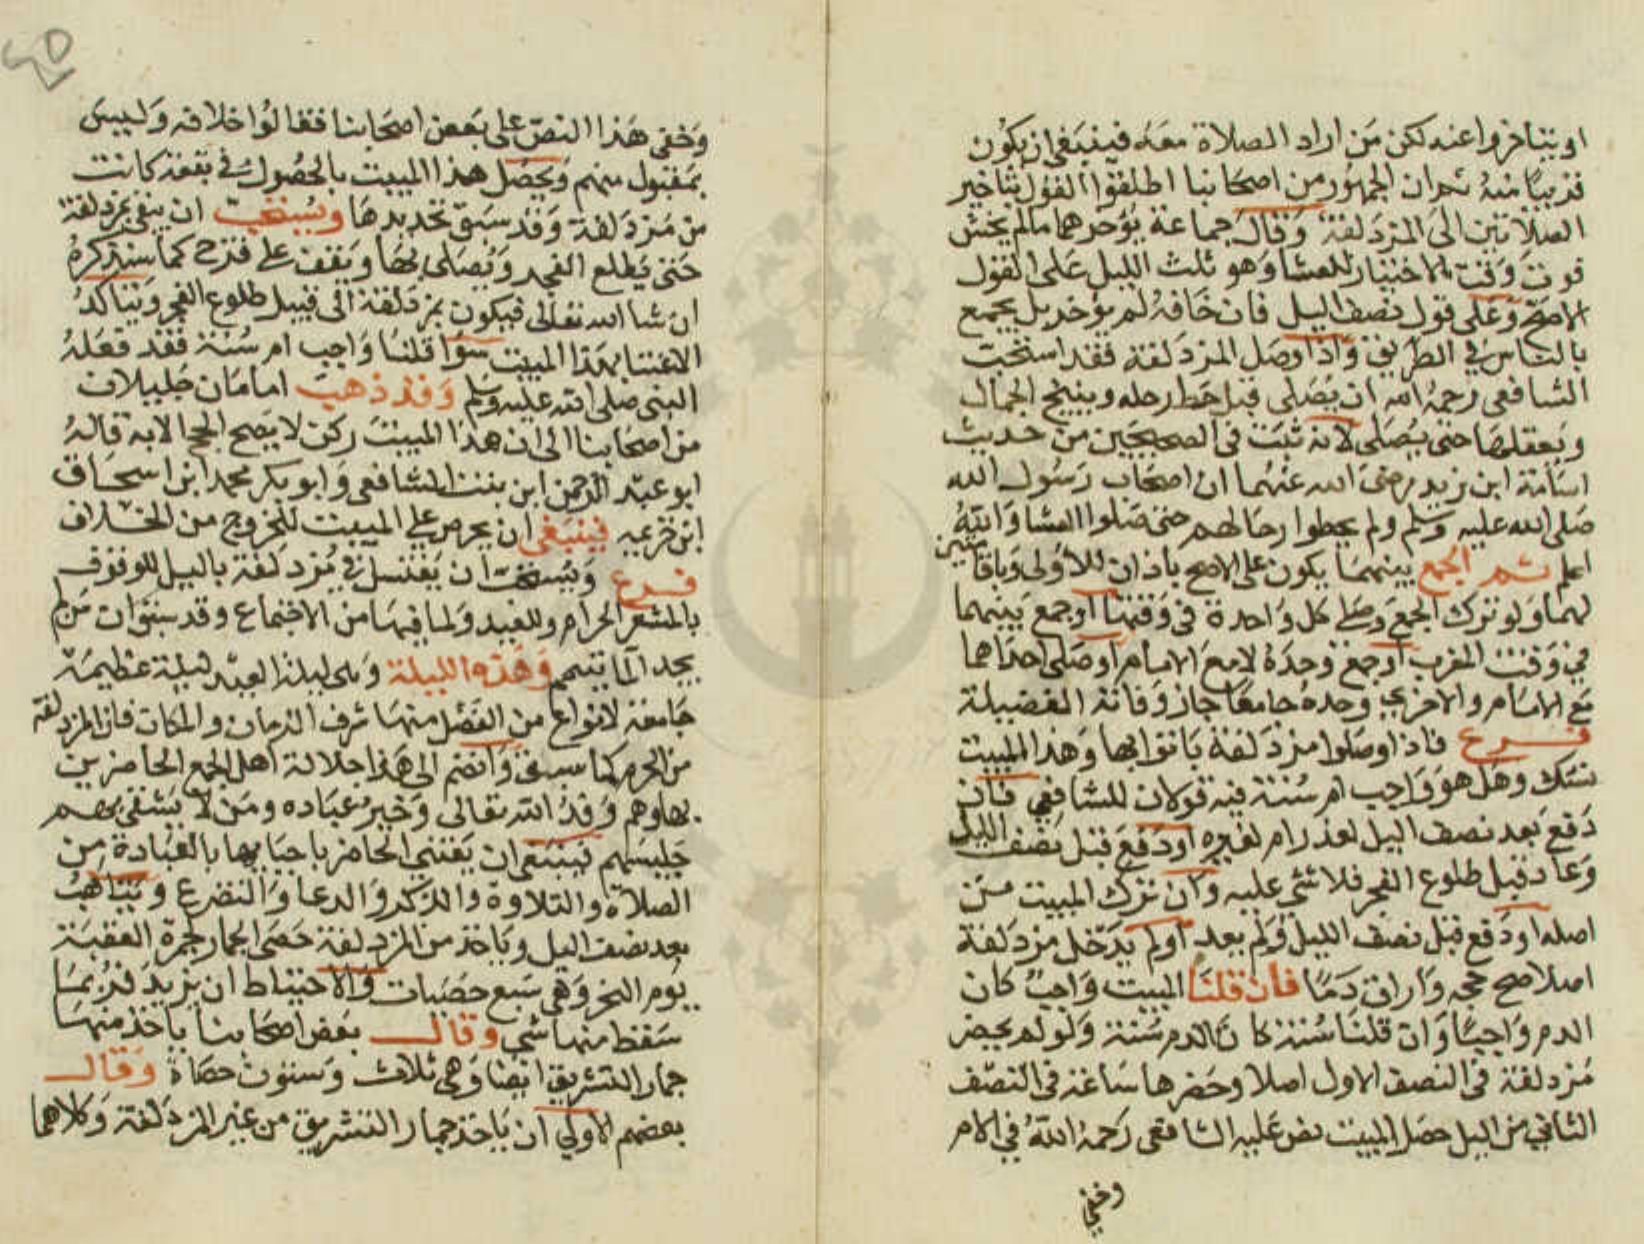 او يتاخروا عنه لكن من اراد الصلاة معه فينبغي ان يكون
قريبا منه ثم ان الجمهور من اصحابنا اطلقوا القول بتاخير
الصلاتين الى المزدلفة وقال جماعة يؤخرهما ما لم يخش
فوت وقت الاختيار للعشا وهو ثلث الليل على القول
الاصح وعلى قول نصف الليل فان خافه لم يؤخر بل يجمع
بالناس في الطريق واذا وصل المزدلفة فقد استحب
الشافعي رحمه الله ان يصلي قبل حط رحله وينيخ الجمال
ويعقلها حتى يصلي لانه ثبت في الصحيحين من حديث
اسامة ابن زيد رضي الله عنهما ان اصحاب رسول الله
صلى الله عليه وسلم لم يحطوا رحالهم حتى صلوا العشا والله
اعلم ثم الجمع بينهما يكون على الاصح باذان للاولى وباقامتين
لهما ولو ترك الجمع وصلى كل واحدة في وقتها او جمع بينهما
في وقت المغرب او جمع وحده لا مع الامام او صلى احداهما
مع الامام والاخرى وحده جامعا جاز وفاتته الفضيلة
فرع فاذا وصلوا مزدلفة باتوا بها وهذا المبيت
نسك وهل هو واجب ام سنة فيه قولان للشافعي فان
دفع بعد نصف الليل لعذر ام لغيره او دفع قبل نصف الليل
وعاد قبل طلوع الفجر فلا شي عليه وان ترك المبيت من
اصله او دفع قبل نصف الليل ولم يعد او لم يدخل مزدلفة
اصلا صح حجه واراق دما فان قلنا المبيت واجب كان
الدم واجبا وان قلنا سنة كان الدم سنة ولو لم يحضر
مزدلفة في النصف الاول اصلا وحضرها ساعة في النصف
الثاني من الليل حصل المبيت نص عليه الشافعي رحمه الله في الام
وخفي
وخفي هذا النص على بعض اصحابنا فقالوا خلافه وليس
بمقبول منهم ويحصل هذا المبيت بالحصول في بقعة كانت
من مزدلفة وقد سبق تحديدها ويستحب ان يبقى بمزدلفة
حتى يطلع الفجر ويصلي بها ويقف على قزح كما سنذكره
ان شا الله تعالى فيكون بمزدلفة الى قبيل طلوع الفجر ويتاكد
الاعتنا بهذا المبيت سوا قلنا واجب ام سنة فقد فعله
النبي صلى الله عليه وسلم وقد ذهب امامان جليلان
من اصحابنا الى ان هذا المبيت ركن لا يصح الحج الا به قاله
ابو عبد الرحمن ابن بنت الشافعي وابو بكر محمد ابن اسحاق
ابن خزيمه فينبغي ان يحرص على المبيت للخروج من الخلاف
فرع ويستحب ان يغتسل في مزدلفة بالليل للوقوف
بالمشعر الحرام وللعيد ولما فيها من الاجتماع وقد سبق ان من لم
يجد الما تيمم وهذه الليلة وهي ليلة العيد ليلة عظيمة
جامعة لانواع من الفضل منها شرف الزمان والمكان فان المزدلفة
من الحرم كما سبق وانضم الى هذا جلالة اهل الجمع الحاضرين
بها وهم وفد الله تعالى وخير عباده ومن لا يشقى بهم
جليسهم فينبغي ان يعتني الحاضر باحيايها بالعبادة من
الصلاة والتلاوة والذكر والدعا والتضرع ويتاهب
بعد نصف الليل وياخذ من المزدلفة حصى الجمار لجمرة العقبة
يوم النحر وهي سبع حصيات والاحتياط ان يزيد فربما
سقط منها شي وقال بعض اصحابنا ياخذ منها
جمار التشريق ايضا وهي ثلاث وستون حصاة وقال
بعضهم الاولي ان ياخذ جمار التشريق من غير المزدلفة وكلاهما